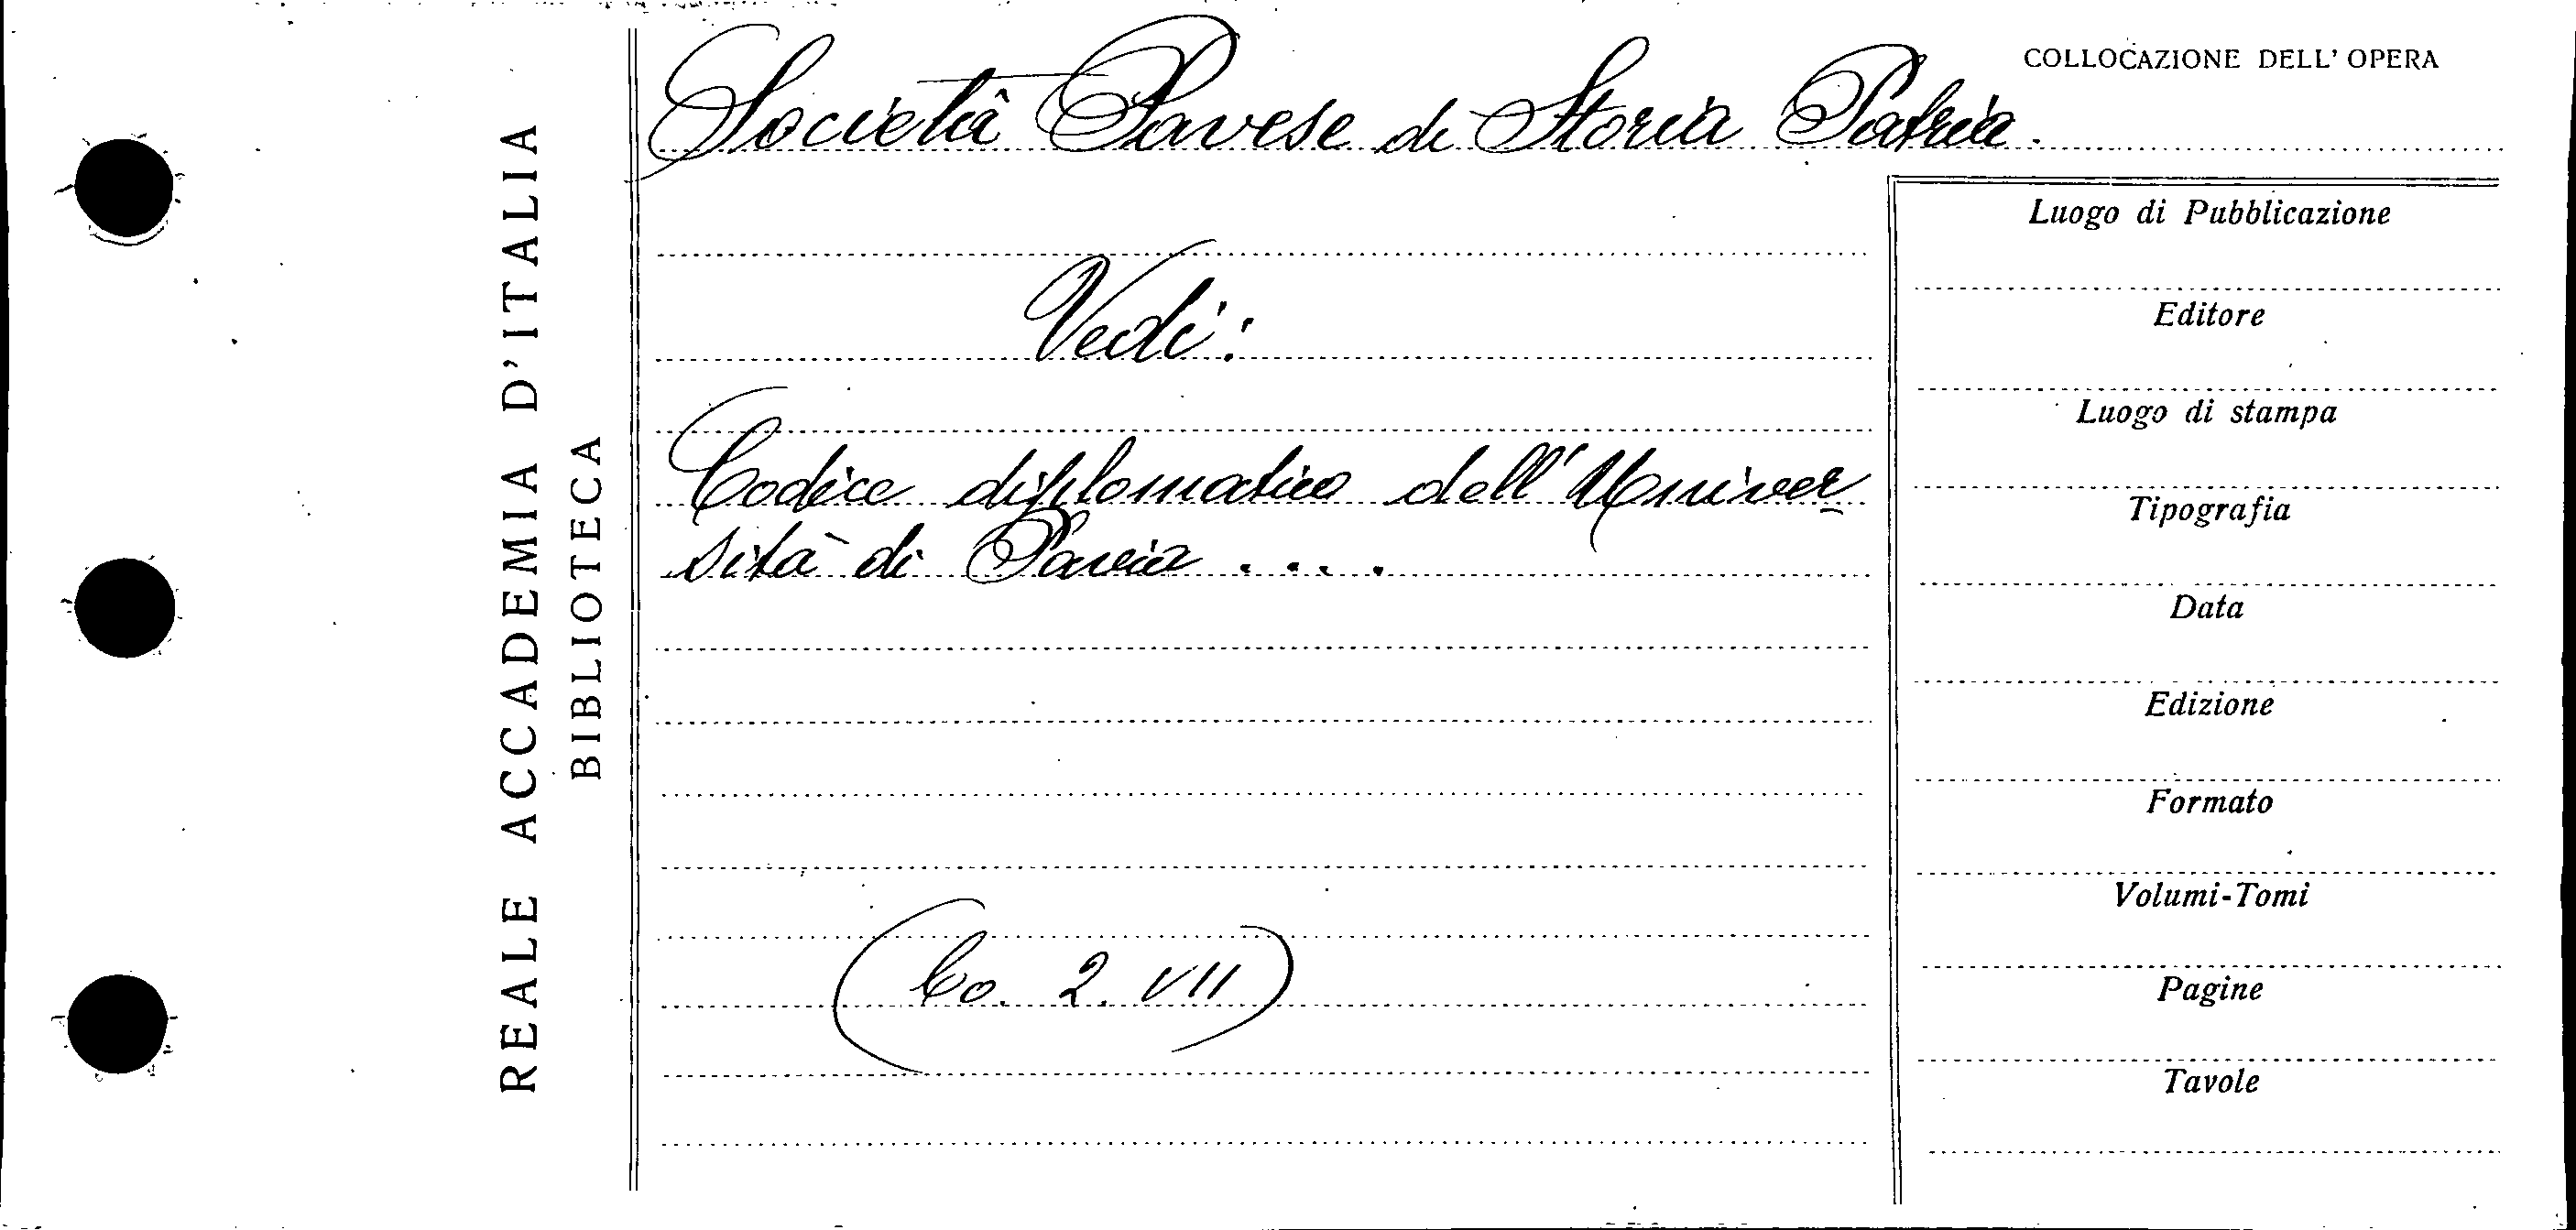 REALE ACCADEMIA D'ITALIA
BIBLIOTECA
COLLOCAZIONE DELL'OPERA
Società Pavese di Storia Patria.
Vedi:
Codice diplomatico dell'Univer
sità di Pavia ....
(Co. 2. VII)
Luogo di Pubblicazione
Editore
Luogo di stampa
Tipografia
Data
Edizione
Formato
Volumi-Tomi
Pagine
Tavole